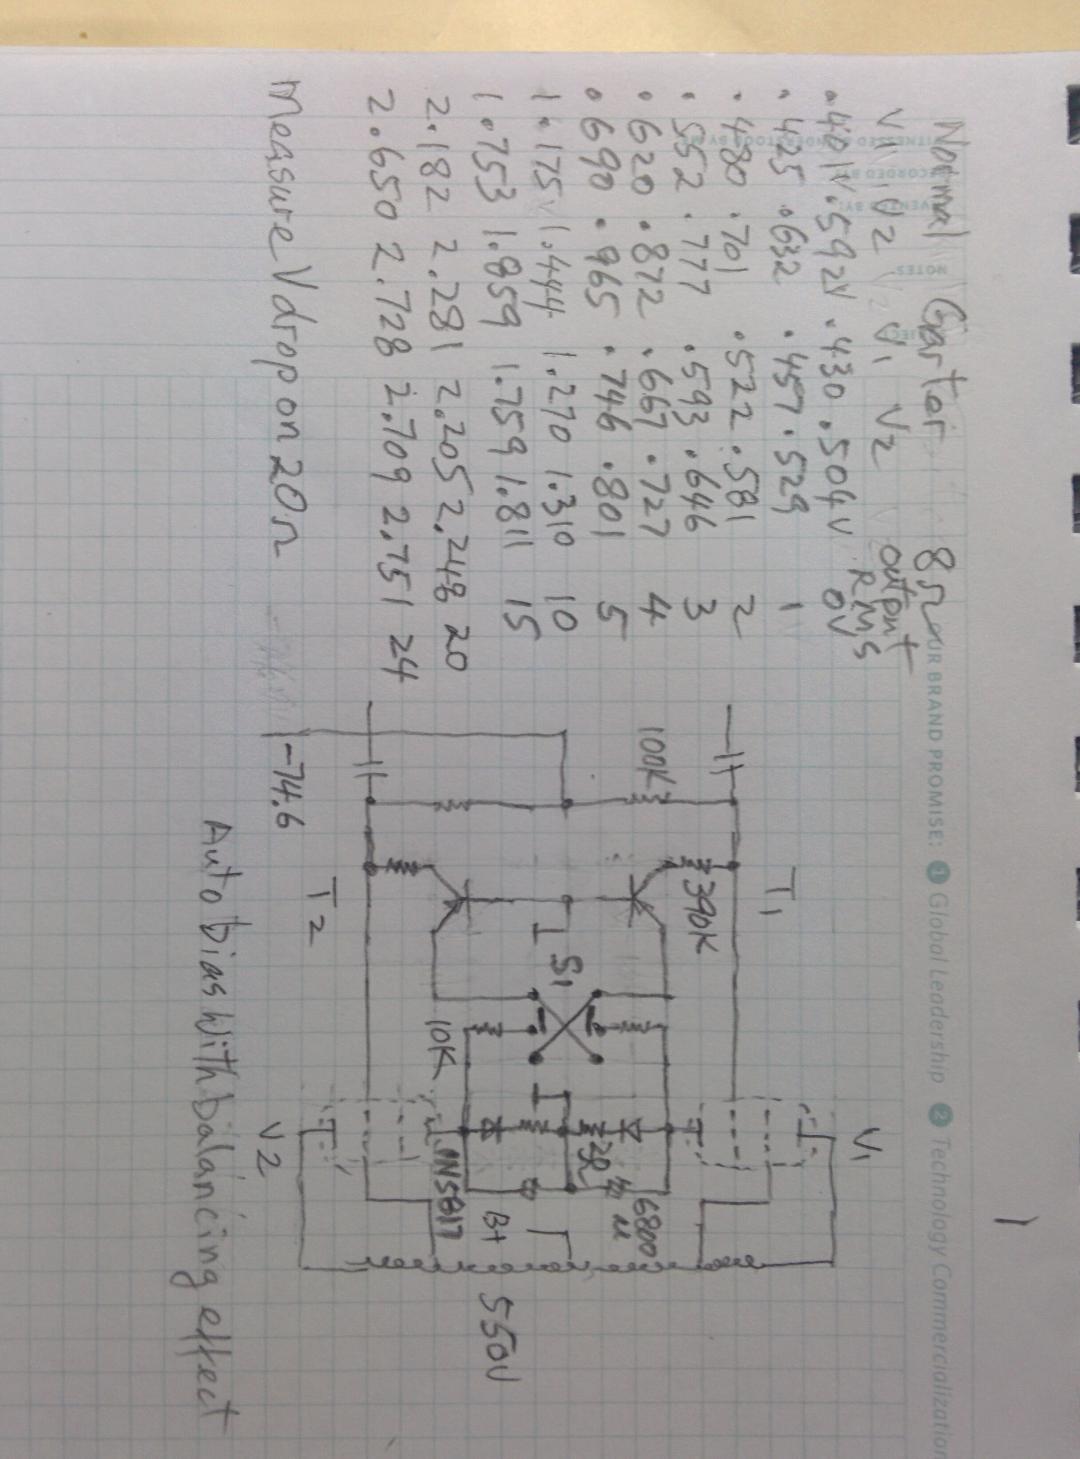 Normal Garter 8Ω
V1 V2 V1 V2 output RMS
.401V .592V .430 .504V 0V
.425 .632 .457 .529 1
.480 .701 .522 .581 2
.552 .777 .593 .646 3
.620 .872 .667 .727 4
.690 .965 .746 .801 5
1.175V 1.444 1.270 1.310 10
1.753 1.859 1.759 1.811 15
2.182 2.281 2.205 2.248 20
2.650 2.728 2.709 2.751 24
Measure V drop on 20Ω
1
T1
V1
100K
390K
S1
6800
B+
10K
1N5817
550V
-74.6
T2
V2
Auto bias with balancing effect
OUR BRAND PROMISE: 1 Global Leadership 2 Technology Commercialization
NOTES